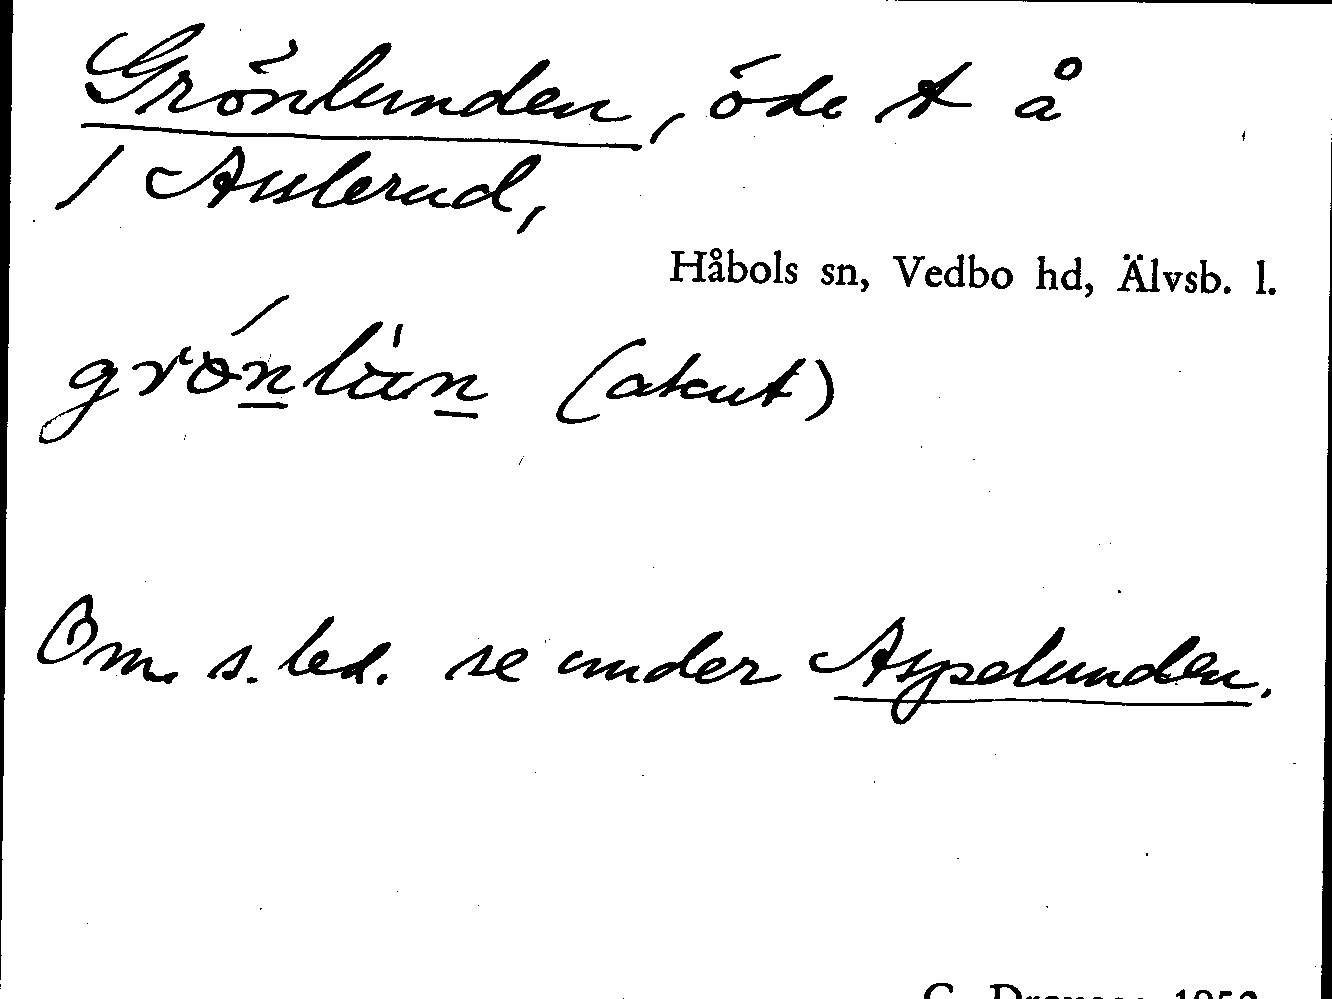 Grönlunden, öde t å
1 Asslerud,
Håbols sn, Vedbo hd, Älvsb. l.
(akut)
Om s. led. se under Aspelunden.